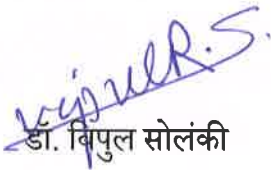 Vipul R. S.
डॉ. विपुल सोलंकी